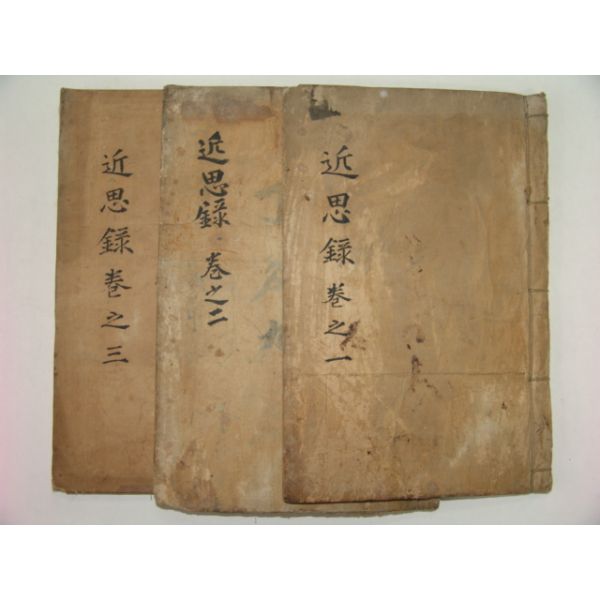 近思録卷之一
近思録 卷之二
近思録卷之三